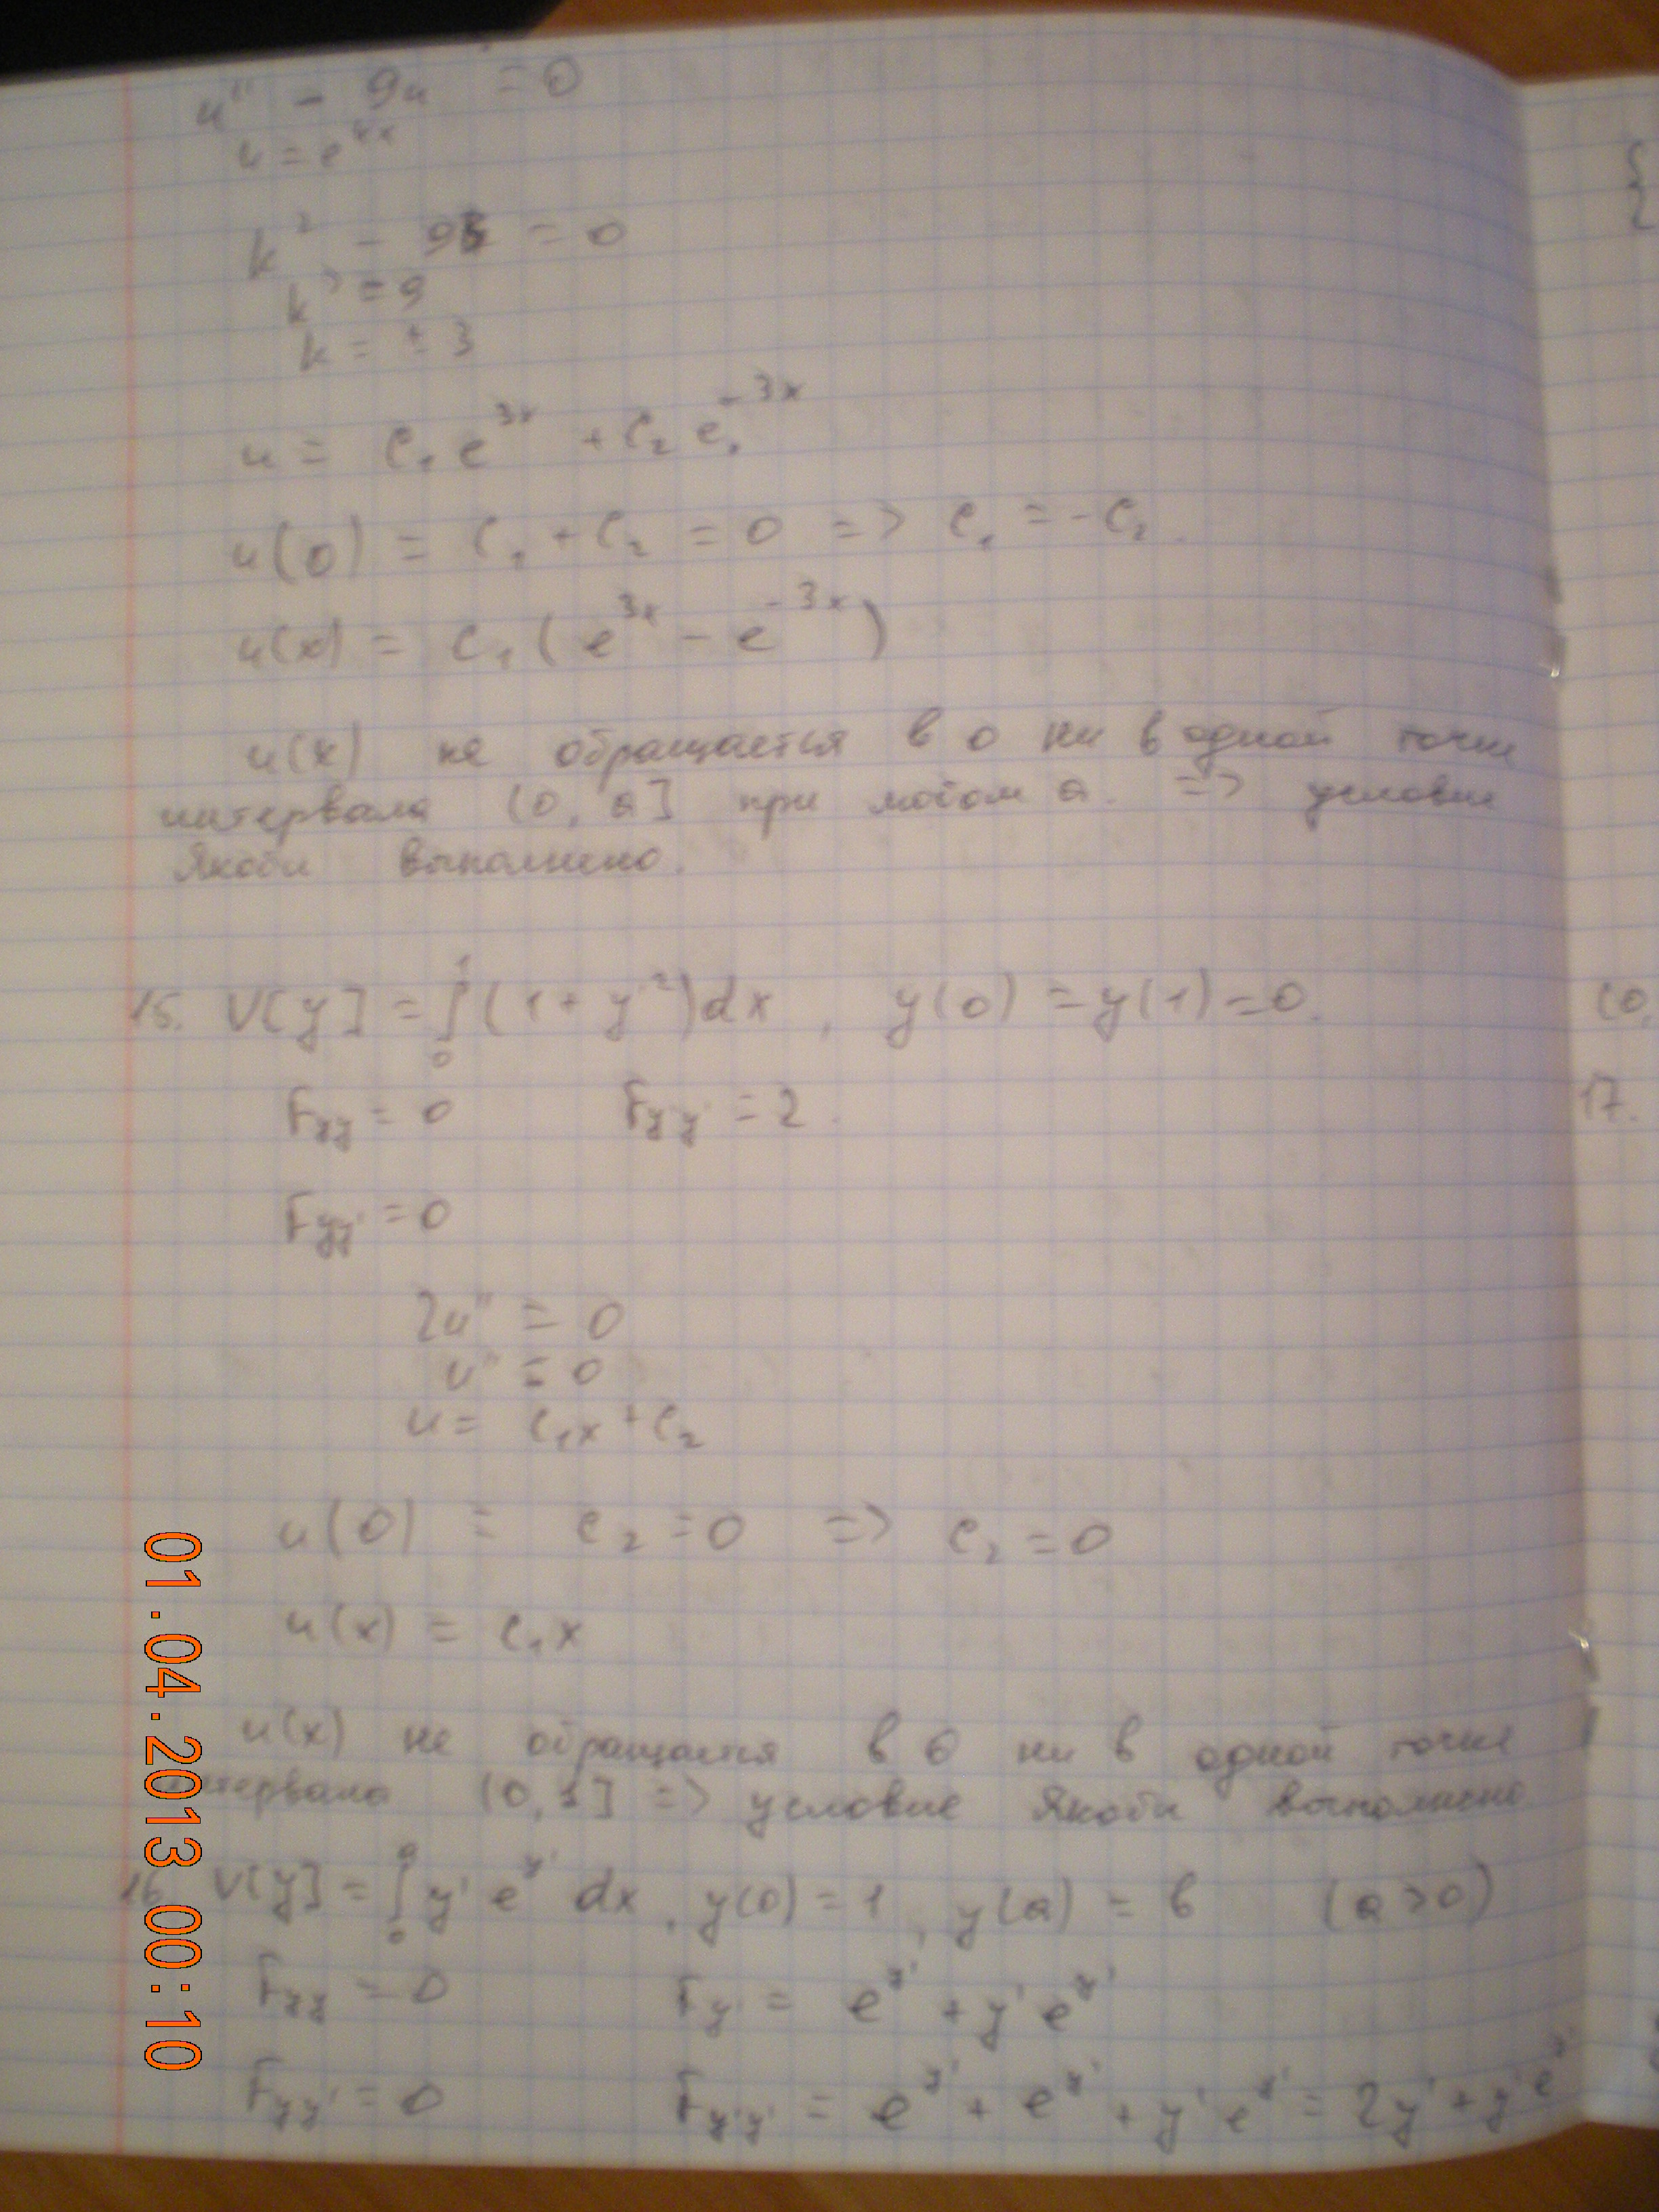 u'' - 9u = 0
u = e^{kx}
k² - 9 = 0
k² = 9
k = ± 3
u = C₁ e^{3x} + C₂ e^{-3x}
u(0) = C₁ + C₂ = 0 => C₁ = -C₂.
u(x) = C₁ ( e^{3x} - e^{-3x} )
u(x) не обращается в 0 ни в одной точке
интервала (0, a] при любом a. => условие
Якоби выполнено.
15. V[y] = ∫₀¹ (1 + y'²) dx , y(0) = y(1) = 0.
F_{yy} = 0 F_{y'y'} = 2.
F_{yy'} = 0
2u'' = 0
u'' = 0
u = C₁x + C₂
u(0) = C₂ = 0 => C₂ = 0
u(x) = C₁x
u(x) не обращается в 0 ни в одной точке
интервала (0, 1] => условие Якоби выполнено
16. V[y] = ∫₀ᵃ y' e^{y'} dx , y(0) = 1 , y(a) = b (a > 0)
F_{yy} = 0 F_{y'} = e^{y'} + y' e^{y'}
F_{yy'} = 0 F_{y'y'} = e^{y'} + e^{y'} + y' e^{y'} = 2y' + y' e^{y'}
(0,
17.
01.04.2013 00:10